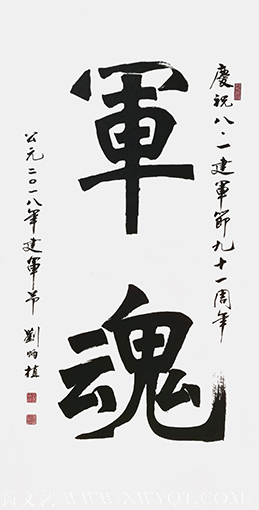 慶祝八·一建軍節九十一周年
軍魂
公元二〇一八年建軍节
劉炳植
WWW.XWYQT.COM